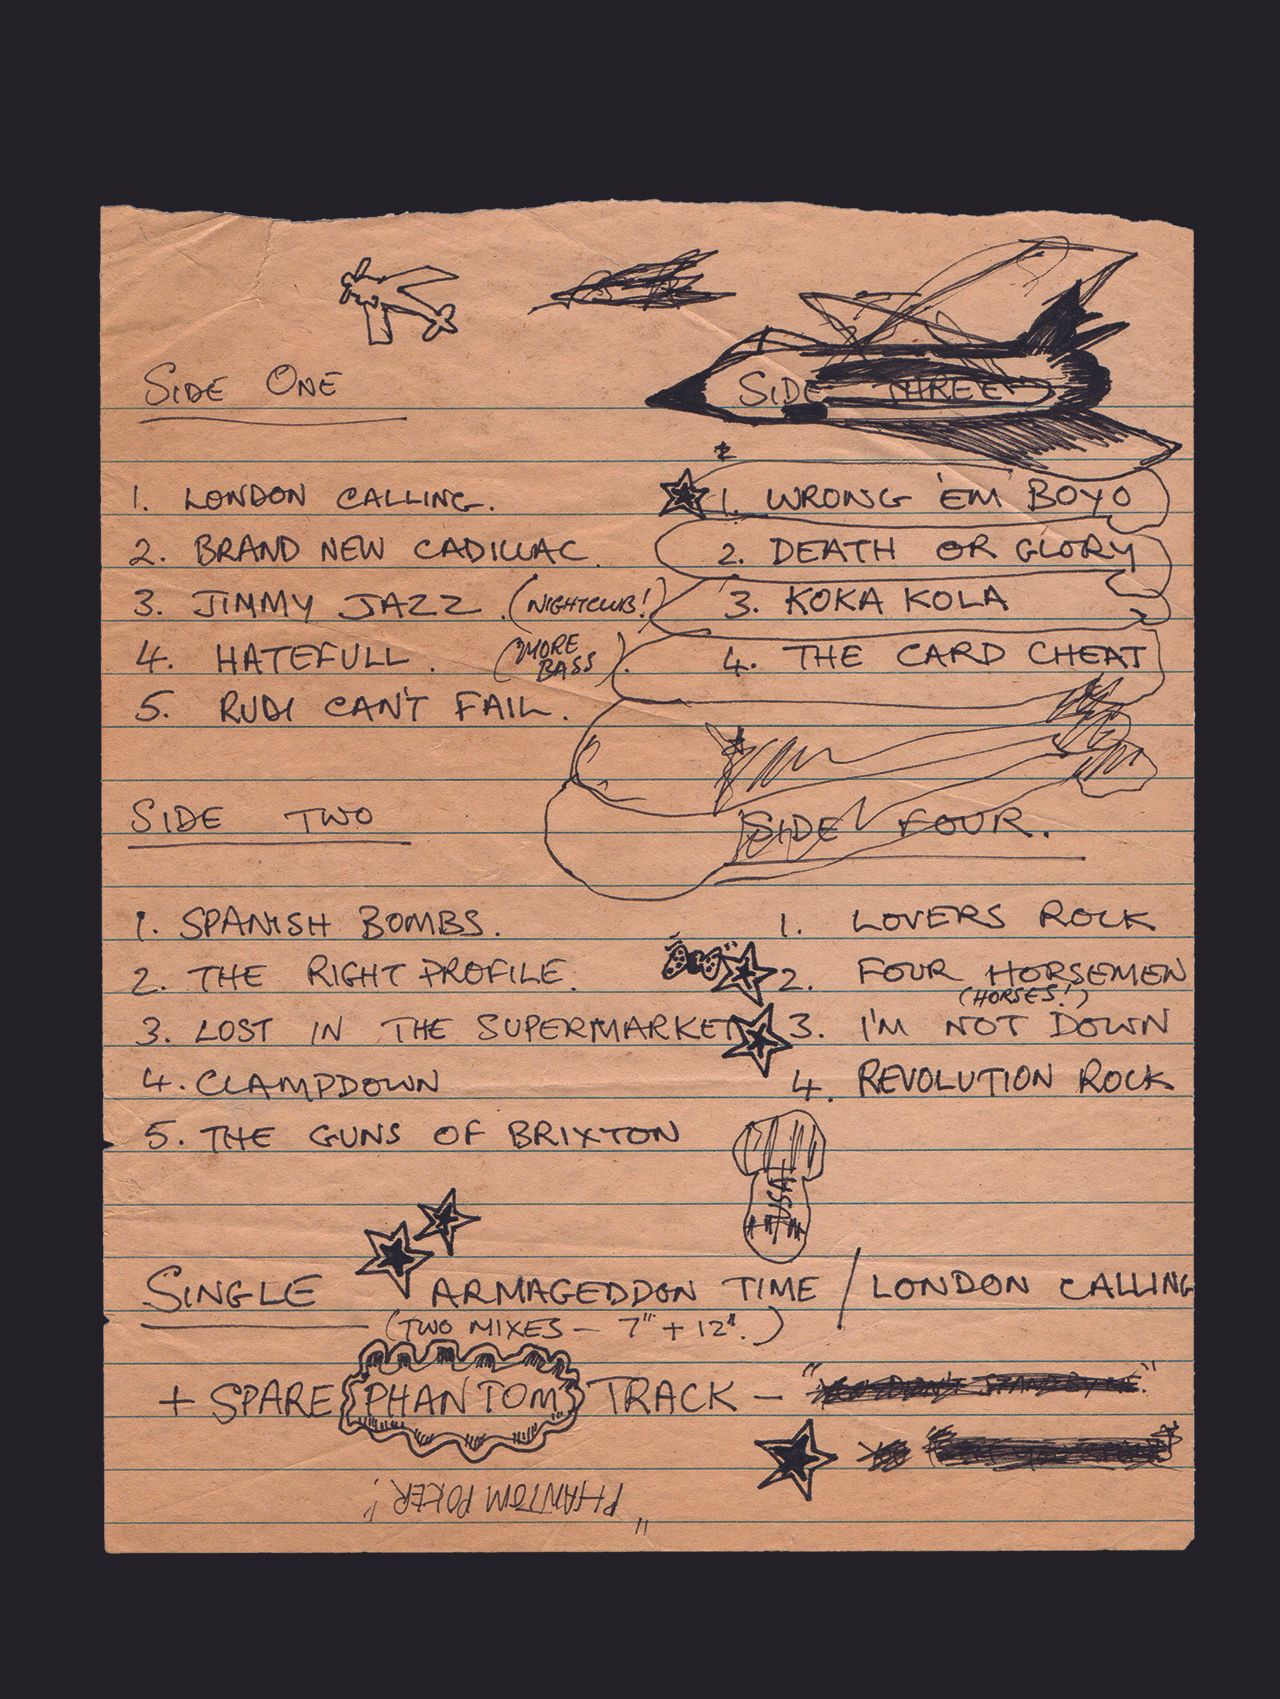 SIDE ONE
1. LONDON CALLING.
2. BRAND NEW CADILLAC.
3. JIMMY JAZZ. (NIGHTCLUB!)
4. HATEFULL. (MORE BASS).
5. RUDI CAN'T FAIL.
SIDE TWO
1. SPANISH BOMBS.
2. THE RIGHT PROFILE.
3. LOST IN THE SUPERMARKET
4. CLAMPDOWN
5. THE GUNS OF BRIXTON
SIDE THREE
1. WRONG 'EM BOYO
2. DEATH OR GLORY
3. KOKA KOLA
4. THE CARD CHEAT
SIDE FOUR.
1. LOVERS ROCK
2. FOUR HORSEMEN
(HORSES!)
3. I'M NOT DOWN
4. REVOLUTION ROCK
USA
SINGLE ARMAGEDDON TIME / LONDON CALLING
(TWO MIXES - 7" + 12".)
+ SPARE PHANTOM TRACK -
"PHANTOM POKER!"